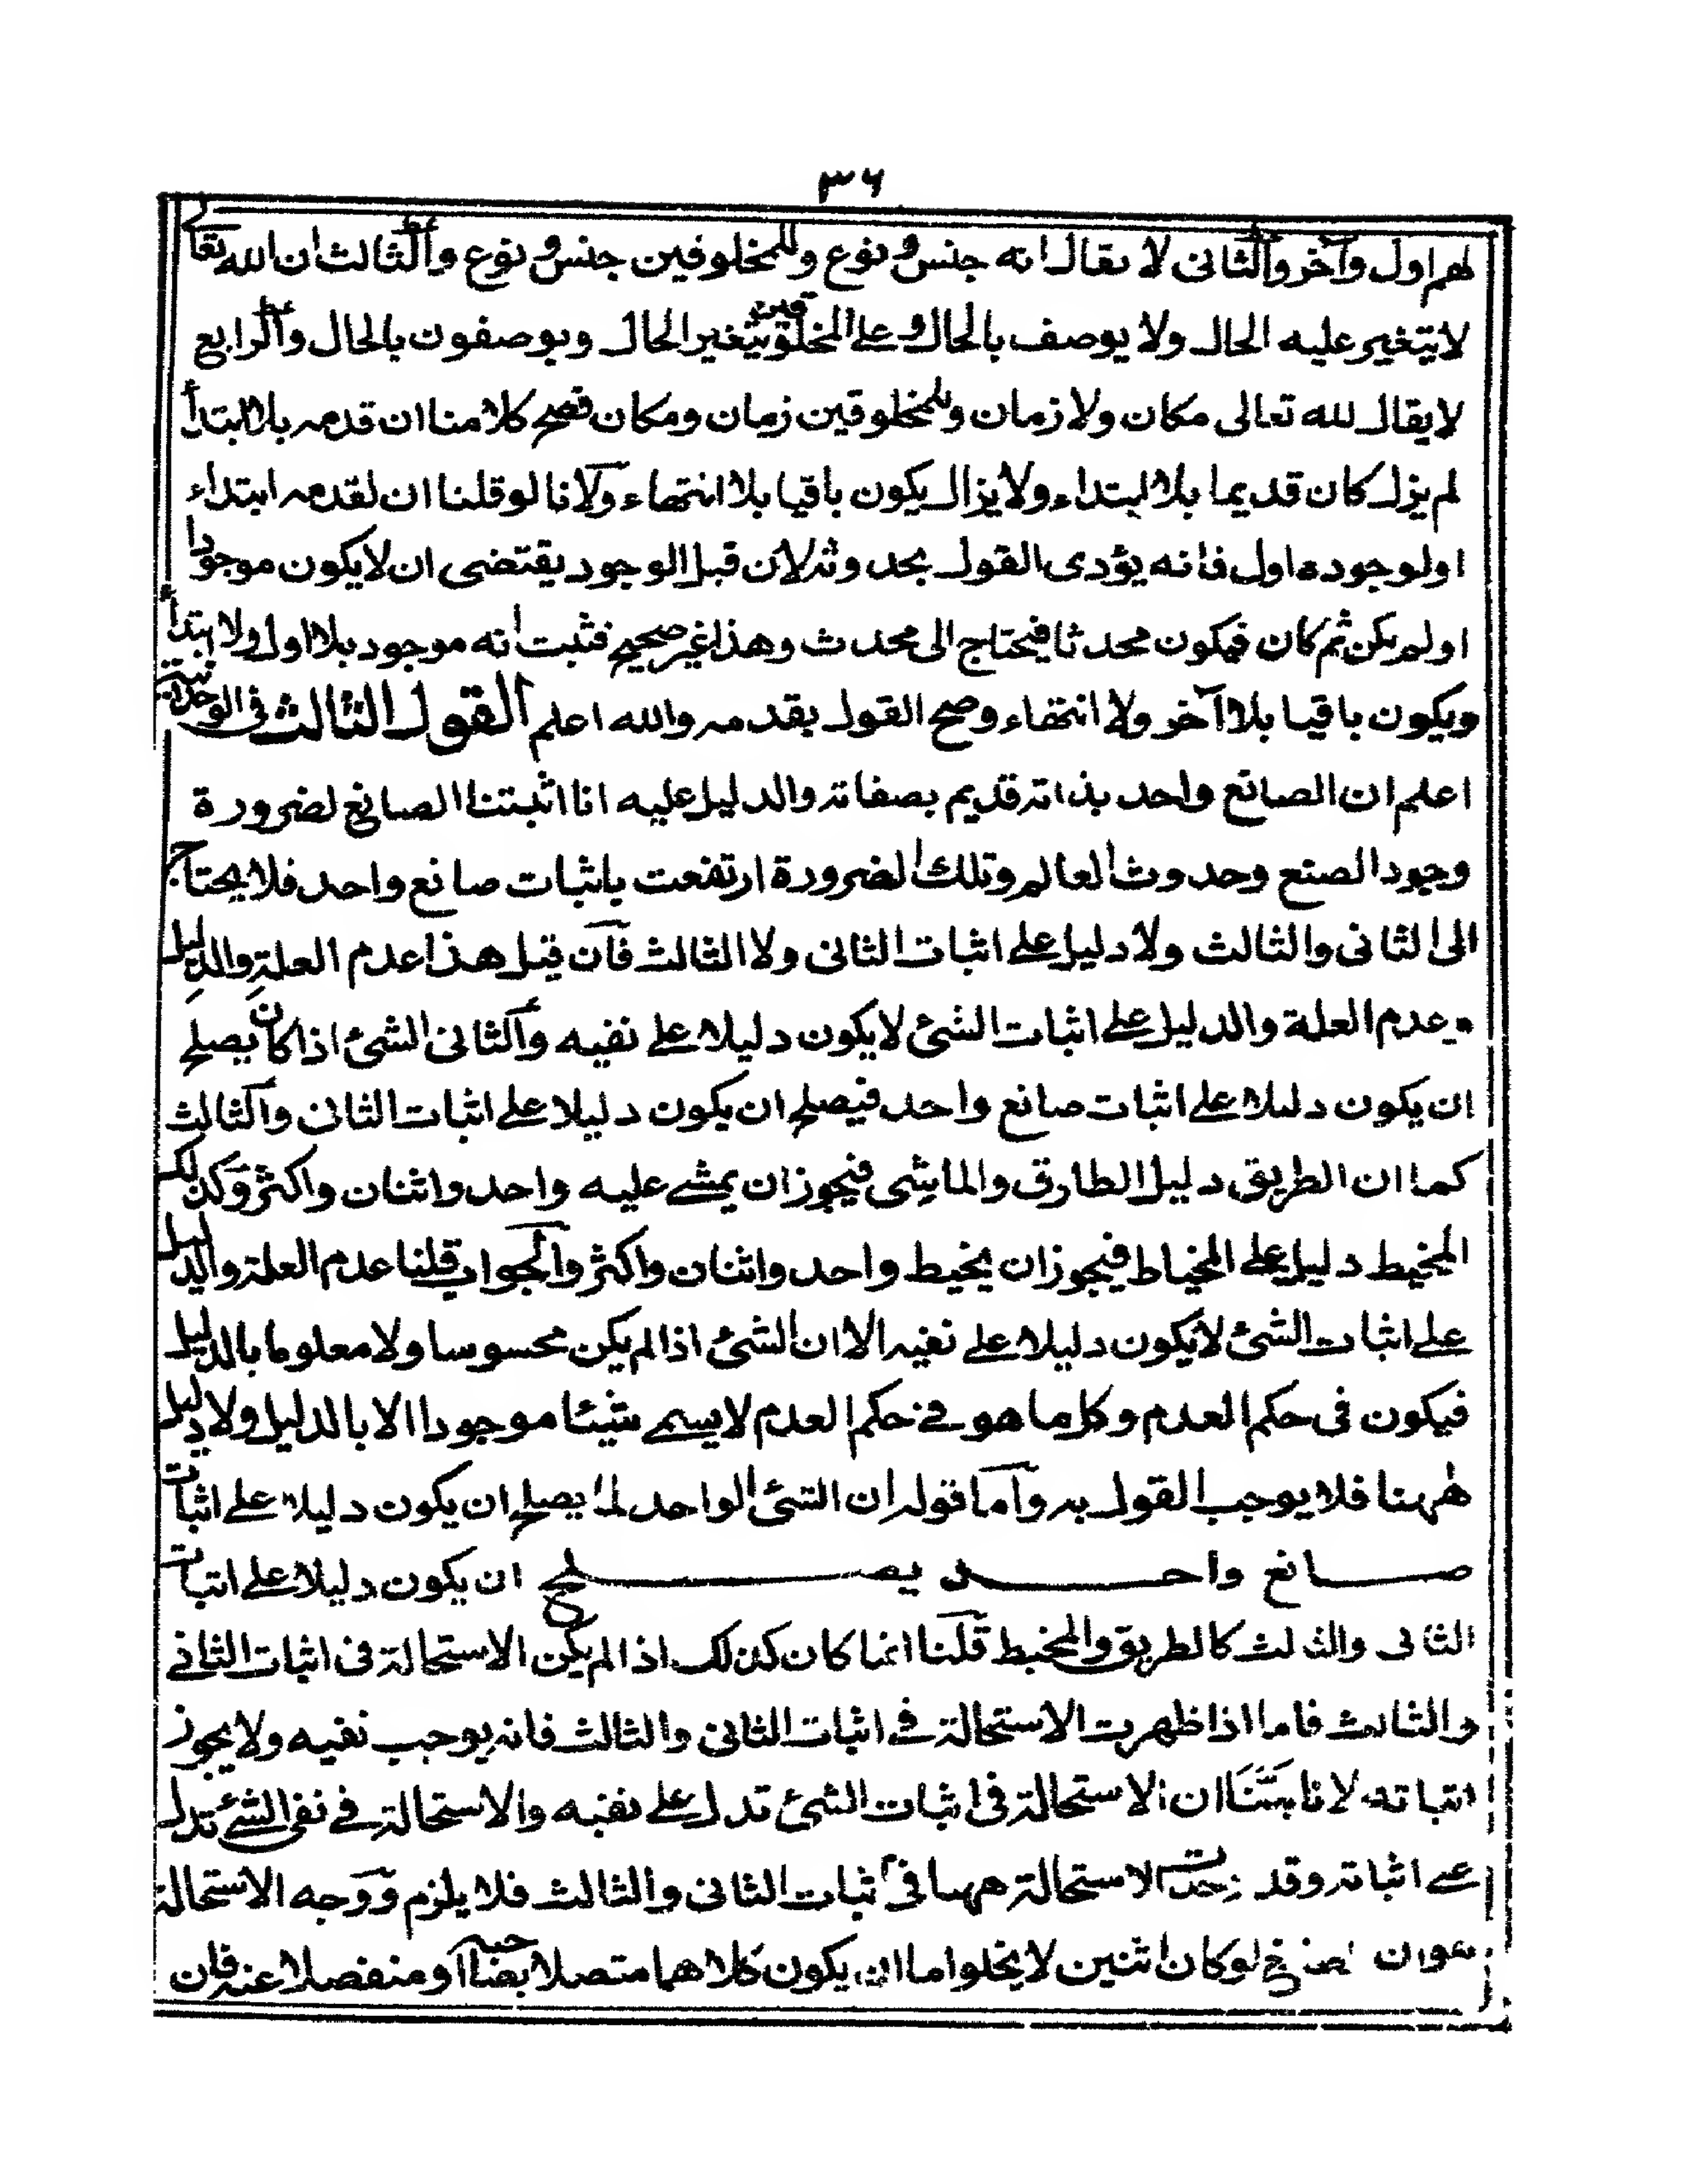 ٣٦
لهم اول وآخر والثانى لا يقال انه جنس ونوع وللمخلوقين جنس ونوع والثالث ان الله تعالى
لا يتغير عليه الحال ولا يوصف بالحال وعلى المخلوقين يتغير الحال ويوصفون بالحال والرابع
لا يقال لله تعالى مكان ولا زمان وللمخلوقين زمان ومكان فصح كلامنا ان قدمه بلا ابتداء
لم يزل كان قديما بلا ابتداء ولا يزال يكون باقيا بلا انتهاء ولانا لو قلنا ان لقدمه ابتداء
او لوجوده اول فانه يؤدى القول بحدوثه لان قبل الوجود يقتضى ان لا يكون موجودا
او لم يكن ثم كان فيكون محدثا فيحتاج الى محدث وهذا غير صحيح فثبت انه موجود بلا اول ولا ابتداء
ويكون باقيا بلا آخر ولا انتهاء وصح القول بقدمه والله اعلم القول الثالث فى الوحدانية
اعلم ان الصانع واحد بذاته قديم بصفاته والدليل عليه انا اثبتنا الصانع لضرورة
وجود الصنع وحدوث العالم وتلك الضرورة ارتفعت باثبات صانع واحد فلا يحتاج
الى الثانى والثالث ولا دليل على اثبات الثانى ولا الثالث فان قيل هذا عدم العلة والدليل
وعدم العلة والدليل على اثبات الشئ لا يكون دليلا على نفيه والثانى الشئ اذا كان يصلح
ان يكون دليلا على اثبات صانع واحد فيصلح ان يكون دليلا على اثبات الثانى والثالث
كما ان الطريق دليل الطارق والماشى فيجوز ان يمشى عليه واحد واثنان واكثر وكذلك
المخيط دليل على الخياط فيجوز ان يخيط واحد واثنان واكثر والجواب قلنا عدم العلة والدليل
على اثبات الشئ لا يكون دليلا على نفيه الا ان الشئ اذا لم يكن محسوسا ولا معلوما بالدليل
فيكون فى حكم العدم وكل ما هو فى حكم العدم لا يسمى شيئا موجودا الا بالدليل ولا دليل
ههنا فلا يوجب القول به واما قوله ان الشئ الواحد لما يصلح ان يكون دليلا على اثبات
صانع واحد يصلح ان يكون دليلا على اثبات
الثانى والثالث كالطريق والمخيط قلنا انما كان كذلك اذا لم يكن الاستحالة فى اثبات الثانى
والثالث فاما اذا ظهرت الاستحالة فى اثبات الثانى والثالث فانه يوجب نفيه ولا يجوز
اثباته لانا بيّنا ان الاستحالة فى اثبات الشئ تدل على نفيه والاستحالة فى نفى الشئ تدل
على اثباته وقد الاستحالة ههنا فى اثبات الثانى والثالث فلا يلزم ووجه الاستحالة
لو كان اثنين لا يخلو اما ان يكون كلاهما متصلا بصاحبه او منفصلا عنه فان